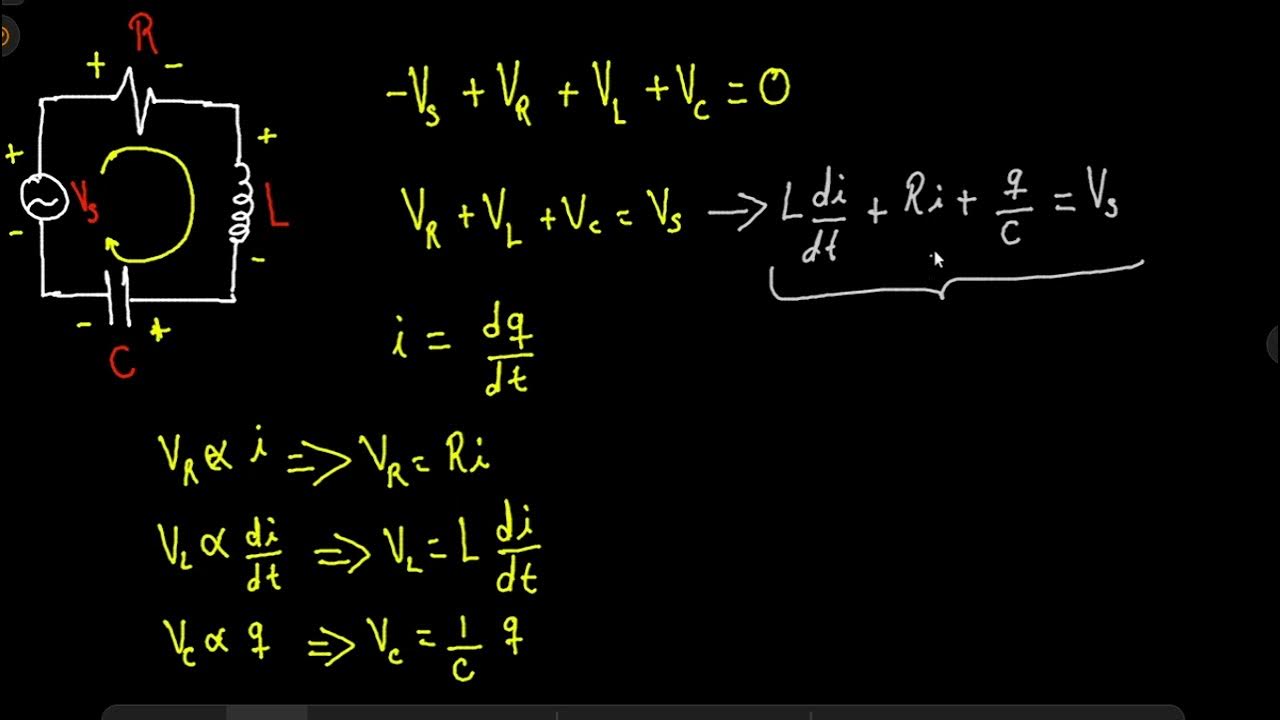 R
+ -
+
+
V_s
L
-
-
- +
C
-V_s + V_R + V_L + V_C = 0
V_R + V_L + V_C = V_s → L di/dt + Ri + q/C = V_s
i = dq/dt
V_R ∝ i ⇒ V_R = Ri
V_L ∝ di/dt ⇒ V_L = L di/dt
V_C ∝ q ⇒ V_C = 1/C q